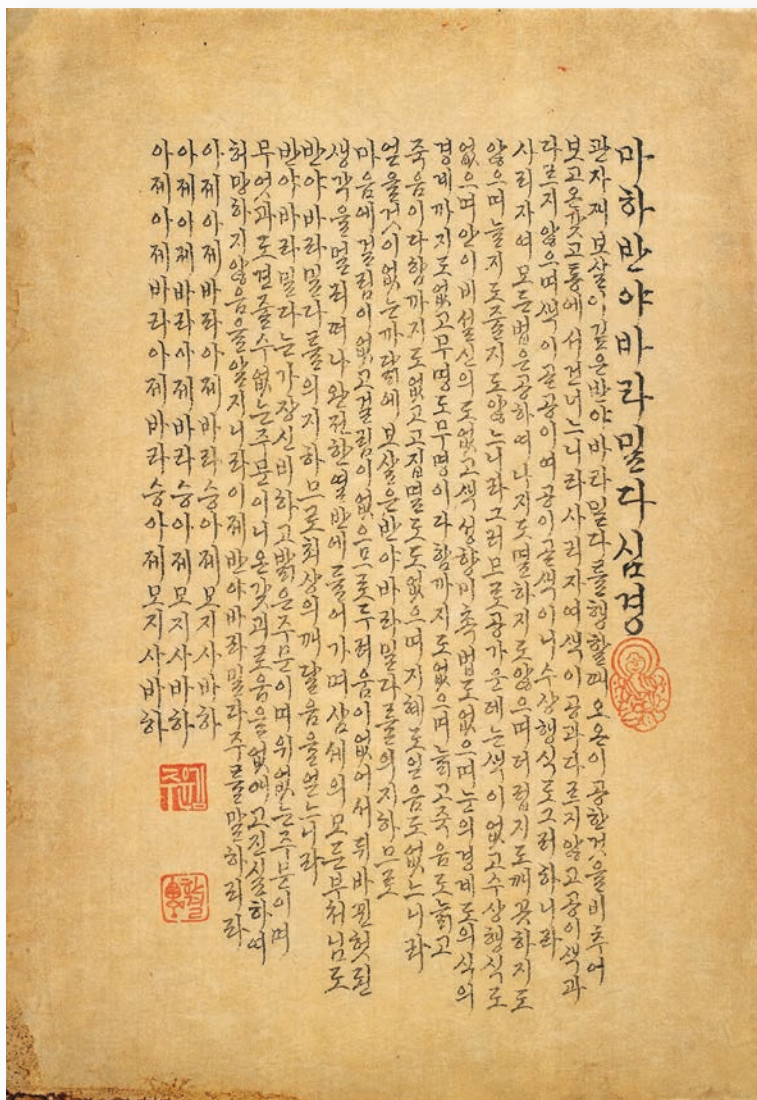 마하반야바라밀다심경
관자재보살이깊은반야바라밀다를행할때오온이공한것을비추어
보고온갖고통에서건너느니라사리자여색이공과다르지않고공이색과
다르지않으며색이곧공이며공이곧색이니수상행식도그러하니라
사리자여모든법은공하여나지도멸하지도않으며더럽지도깨끗하지도
않으며늘지도줄지도않느니라그러므로공가운데는색이없고수상행식도
없으며안이비설신의도없고색성향미촉법도없으며눈의경계도의식의
경계까지도없고무명도무명이다함까지도없으며늙고죽음도늙고
죽음이다함까지도없고고집멸도도없으며지혜도얻음도없느니라
얻을것이없는까닭에보살은반야바라밀다를의지하므로
마음에걸림이없고걸림이없으므로두려움이없어서뒤바뀐헛된
생각을멀리떠나완전한열반에들어가며삼세의모든부처님도
반야바라밀다를의지하므로최상의깨달음을얻느니라
반야바라밀다는가장신비하고밝은주문이며위없는주문이며
무엇과도견줄수없는주문이니온갖괴로움을없애고진실하여
허망하지않음을알지니라이제반야바라밀다주를말하리라
아제아제바라아제바라승아제모지사바하
아제아제바라아제바라승아제모지사바하
아제아제바라아제바라승아제모지사바하